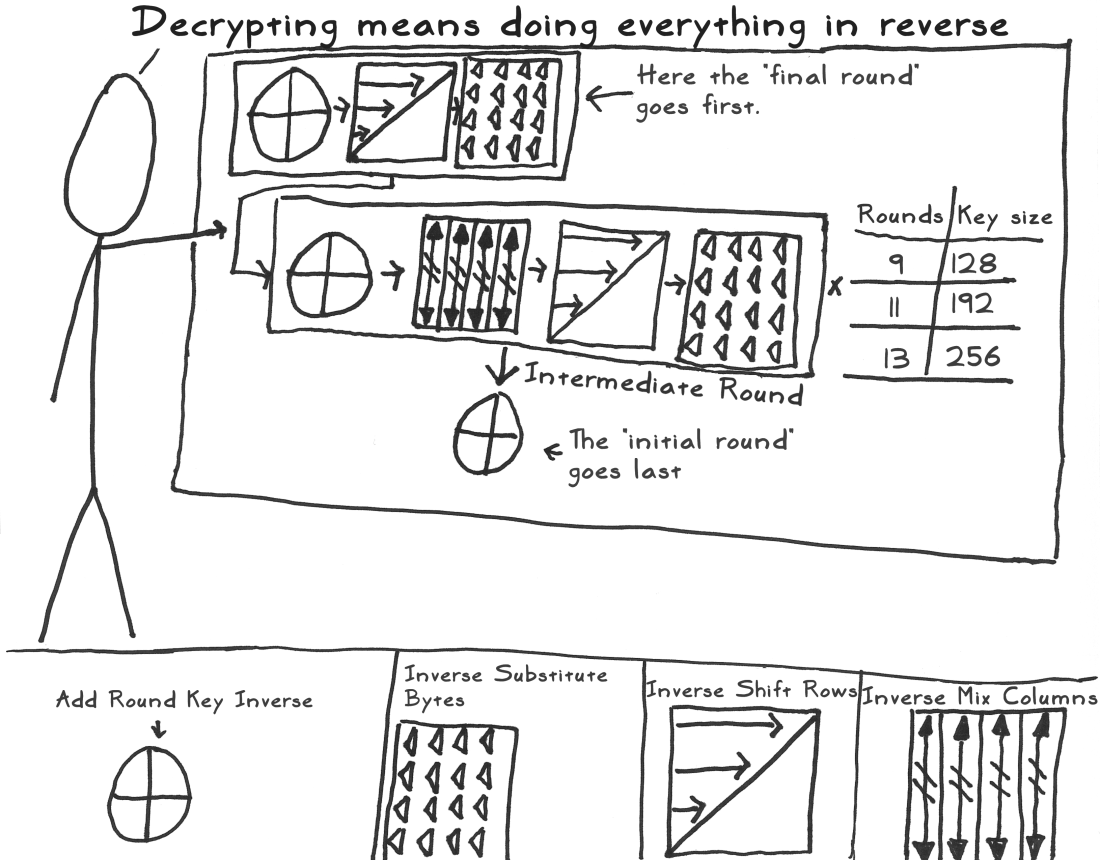 Decrypting means doing everything in reverse
Here the "final round"
goes first.
Rounds Key size
9 128
11 192
13 256
x
Intermediate Round
The "initial round"
goes last
Add Round Key Inverse
Inverse Substitute
Bytes
Inverse Shift Rows
Inverse Mix Columns